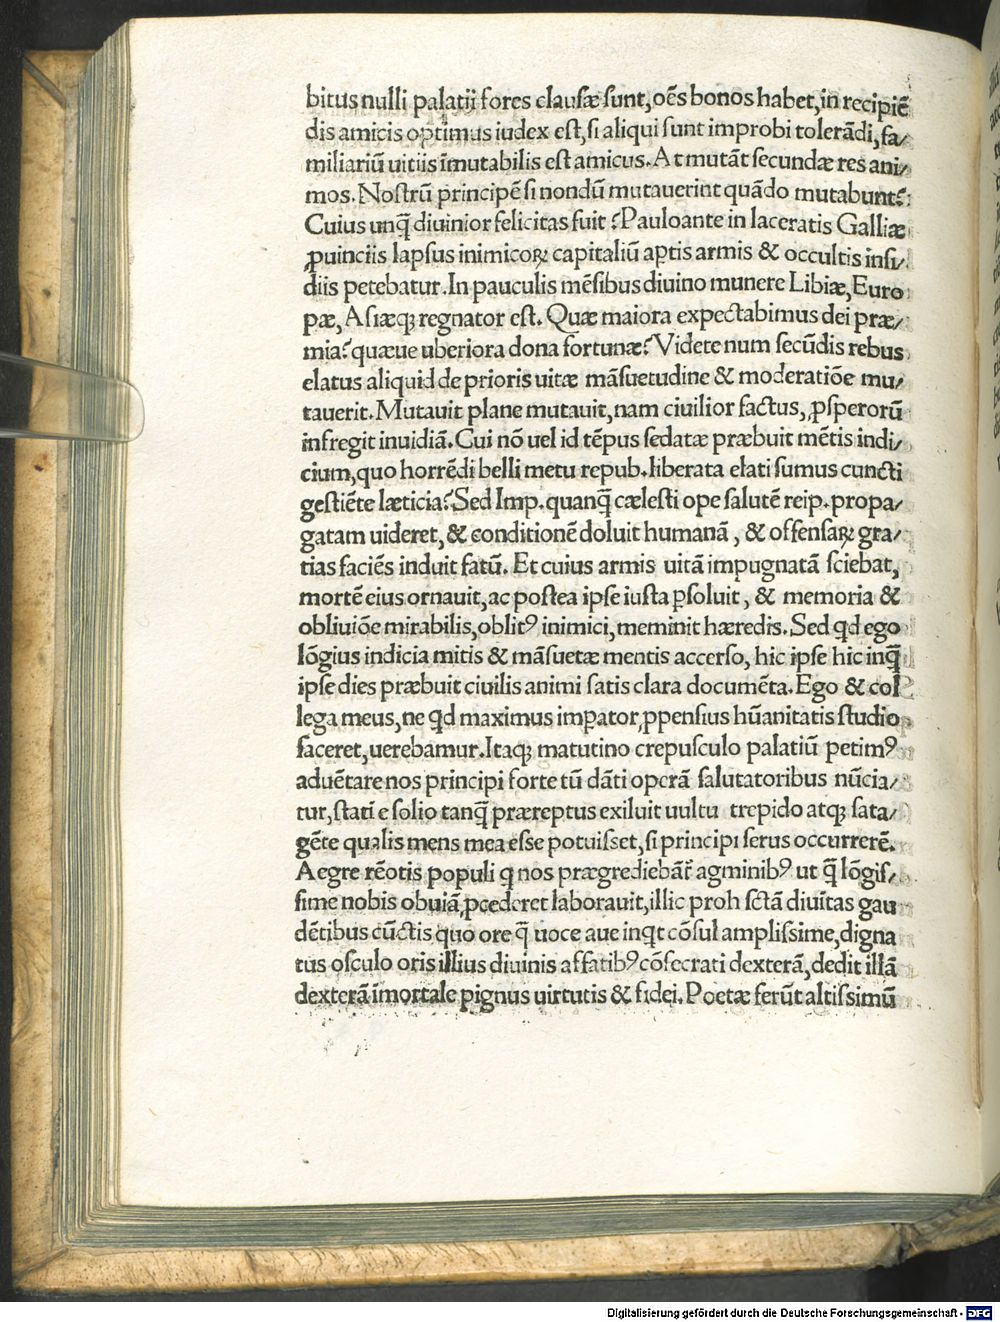 bitus nulli palatij fores clausæ sunt, oēs bonos habet, in recipiē
dis amicis optimus iudex est, si aliqui sunt improbi tolerādi, fa/
miliariū uitiis īmutabilis est amicus. At mutāt secundæ res ani/
mos. Nostrū principē si nondū mutauerint quādo mutabunt?
Cuius unq̄ diuinior felicitas fuit? Paulo ante in laceratis Galliæ
ꝓuinciis lapsus inimicoꝝ capitaliū aꝑtis armis & occultis insi/
diis petebatur. In pauculis mēsibus diuino munere Libiæ, Euro
pæ, Asiæqꝫ regnator est. Quæ maiora expectabimus dei præ/
mia? quæue uberiora dona fortunæ? Videte num secūdis rebus
elatus aliquid de prioris uitæ māsuetudine & moderatiōe mu/
tauerit. Mutauit plane mutauit, nam ciuilior factus, ꝓsperorū
infregit inuidiā. Cui nō uel id tēpus sedatæ præbuit mētis indi/
cium, quo horrēdi belli metu repub. liberata elati sumus cuncti
gestiēte læticia? Sed Imp. quanq̄ cælesti ope salutē reip. propa/
gatam uideret, & conditionē doluit humanā, & offensaꝝ gra/
tias faciēs induit fatū. Et cuius armis uitā impugnatā sciebat,
mortē eius ornauit, ac postea ipse iusta ꝑsoluit, & memoria &
obliuiōe mirabilis, oblitꝰ inimici, meminit hæredis. Sed qd ego
lōgius indicia mitis & māsuetæ mentis accerso, hic ipse hic inq̄
ipse dies præbuit ciuilis animi satis clara documēta. Ego & col
lega meus, ne qd maximus imꝑator, ꝓpensius hūanitatis studio
faceret, uerebamur. Itaqꝫ matutino crepusculo palatiū petimꝰ
aduētare nos principi forte tū dāti operā salutatoribus nūcia/
tur, statī e solio tanq̄ præreptus exiluit uultu trepido atqꝫ sata/
gēte qualis mens mea esse potuisset, si principi serus occurrerē.
Aegre rēotis populi q nos prægrediebāt̄ agminibꝰ ut q̄ lōgis/
sime nobis obuiā ꝓcederet laborauit, illic proh sctā diuītas gau
dētibus cūctis quo ore q̄ uoce aue inqt cōsul amplissime, digna
tus osculo oris illius diuinis affatibꝰ cōsecrati dexterā, dedit illā
dexterā īmortale pignus uirtutis & fidei. Poetæ ferūt altissimū
Digitalisierung gefördert durch die Deutsche Forschungsgemeinschaft - DFG